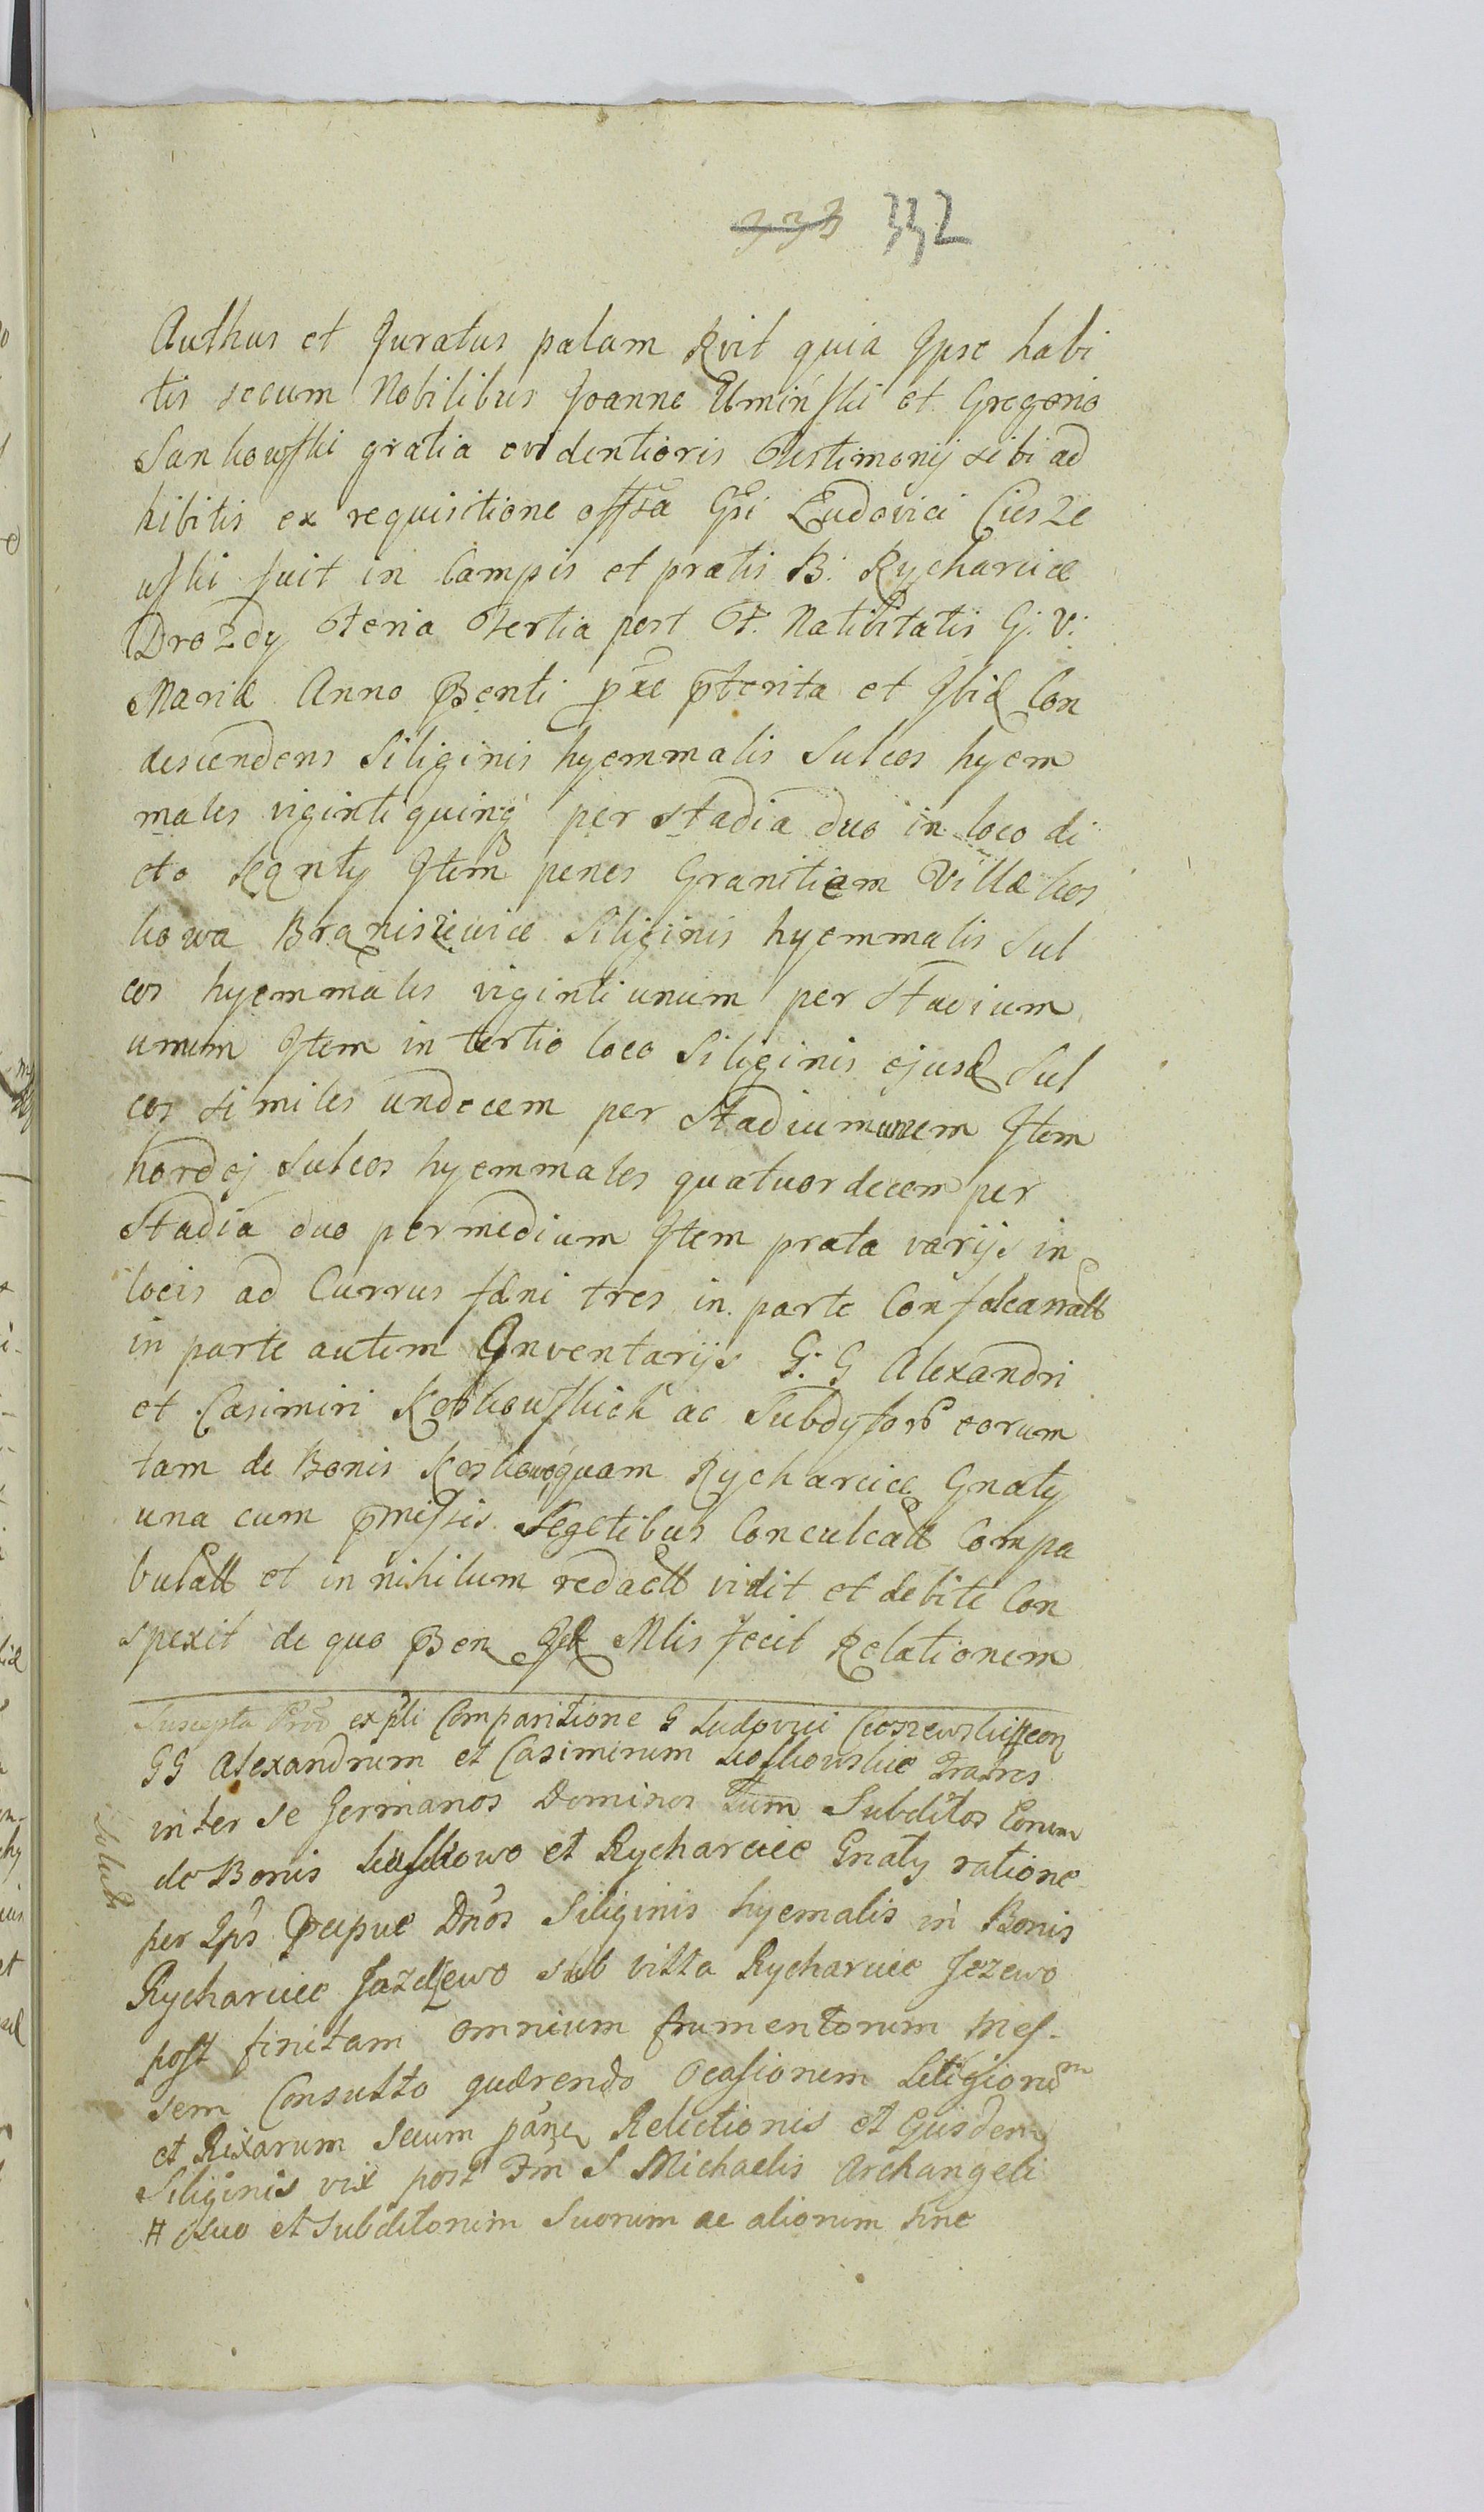 333 332
Authus et Juratus palam Rvit quia Jpse habi
tis secum Nobilibus Joanne Umiński et Gregorio
Sankowski gratia evidentioris Testimonij sibi ad
hibitis ex requisitione offsa Gsi Ludovici Ciesze
wski fuit in Campis et pratis B: Rycharcice
Drozdy Feria Tertia post F. Natibitatis G: V:
Mariæ Anno Pnti pxe pterita et Jbid Con
descendens Siliginis hyemmalis Sulcos hyem
males viginti quinq per stadia duo in loco di
cto Kęnty Jtem penes Granitiem Villæ Kos
kowa Braniszewice Siliginis hyemmalis Sul
cos hyemmales viginti unum per Stadium
unum Jtem in tertio loco Siliginis ejusd Sul
cos similes undecem per Stadium unum Jtem
hordej Sulcos hyemmales quatuordecem per
Stadia duo per medium Jtem prata varijs in
locis ad Currus fæni tres in parte Confalcatt
in parte autem Jnventarijs G: G Alexandri
et Casimiri Koskowskich ac Subdytorb eorum
tam de Bonis Koskowo quam Rycharcice Gnaty
una cum pmissis Segetibus Conculcatt Compa
bulatt et in nihilum redactt vidit et debite Con
spexit de quo Pen Mlis fecit Relationem
Suscepta Prod expli Comparitione G Ludovici Cieszewski
GG Alexandrum et Casimirum Koskowskie Fratres
inter se Germanos Dominos tum Subditos Eorum
de Bonis Koskowo et Rycharcice Gnaty ratione
per Jps Pcipue Dnos Siliginis hyemalis in Bonis
Rycharcice Jazdzewo sub villa Rycharcice Jezewo
post finitam omnium frumentorum Mes-
sem Consulto quærendo Ocasionem Litigiorum
et Rixarum Secum Relictionis et Ejusdem
Siliginis vix post Fm S Michaelis Archangeli
# suo et Subditorum Suorum ac aliorum sine